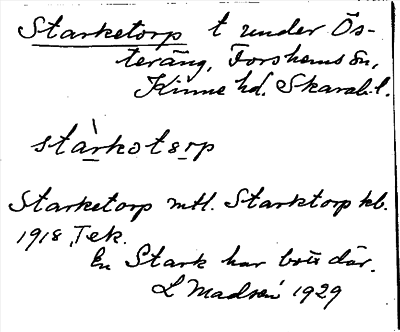 Starketorp t under Ös-
teräng, Forshems sn,
Kinne hd. Skarab. l.
stàrkotorp
Starketorp mtl. Starktorp kb.
1918, Tek.
En Stark har bott där.
L Madsén 1929